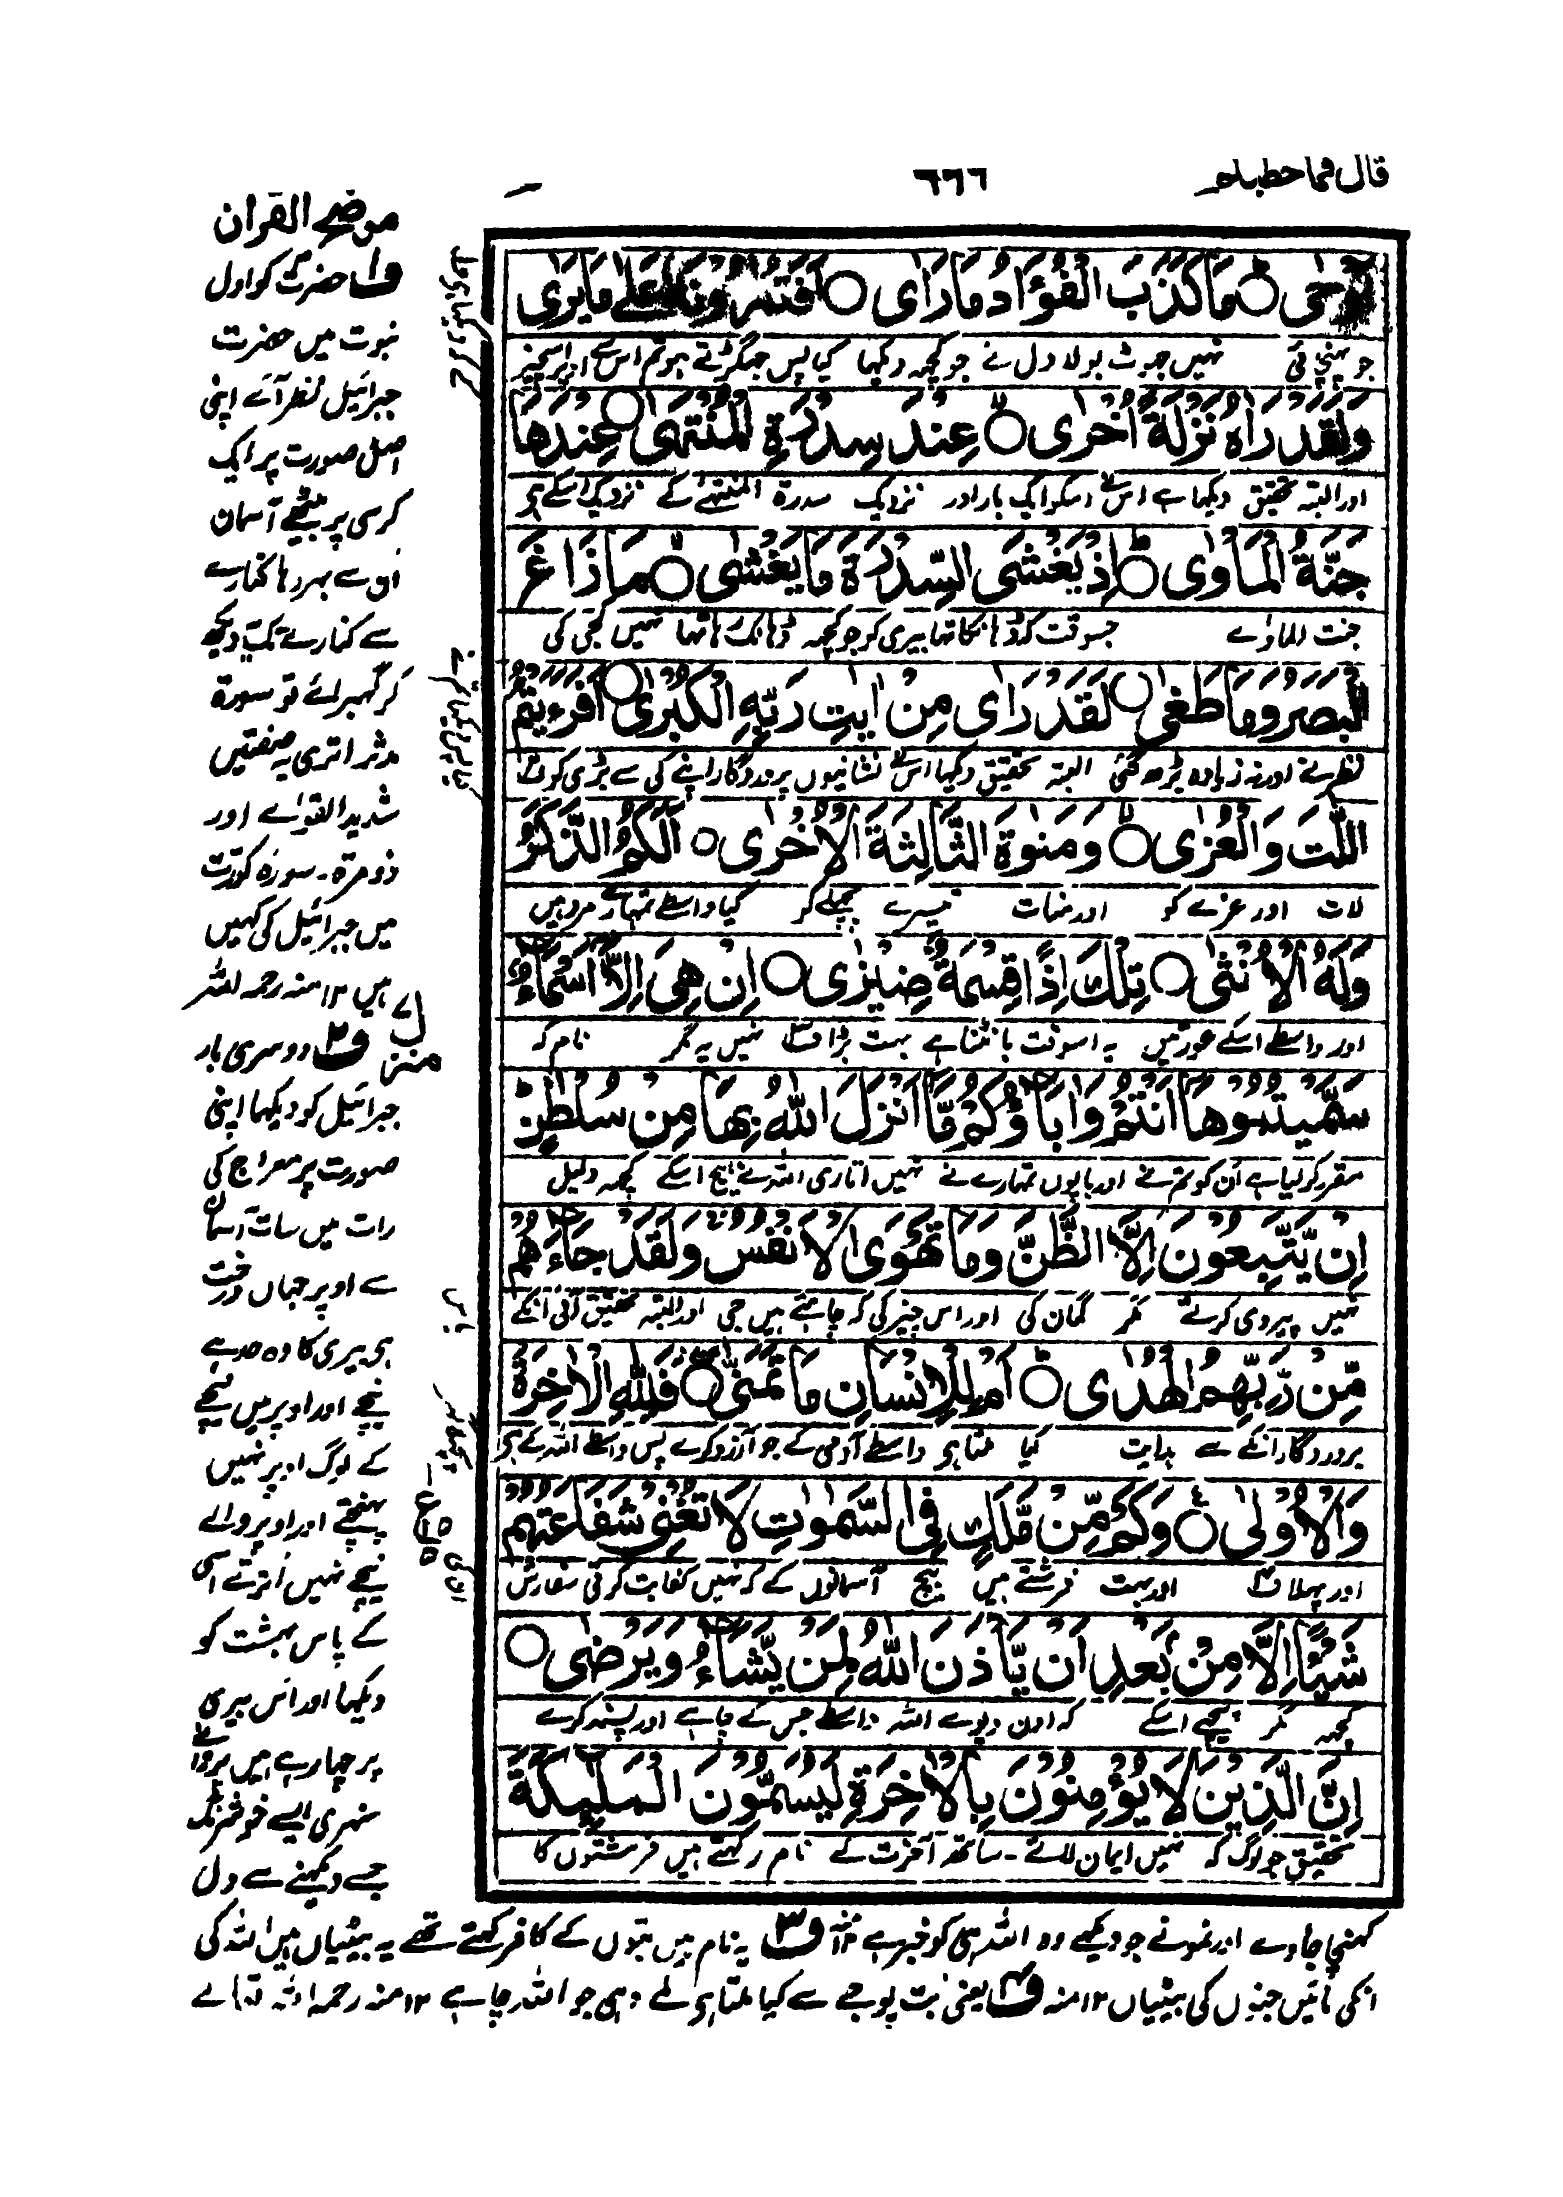 قال فما خطبكم
٦٦٦
اَوْحٰى ○ مَا كَذَبَ الْفُؤَادُ مَا رَاٰى ○ اَفَتُمٰرُوْنَهٗ عَلٰى مَا يَرٰى
جو پہنچائی نہیں جھوٹ بولا دل نے جو کچھ دیکھا کیا پس جھگڑتے ہو تم اس سے اوپر اس چیز
وَلَقَدْ رَاٰهُ نَزْلَةً اُخْرٰى ○ عِنْدَ سِدْرَةِ الْمُنْتَهٰى ○ عِنْدَهَا
اور البتہ تحقیق دیکھا ہے اس نے اسکو ایک بار اور نزدیک سدرۃ المنتہےٰ کے نزدیک اسکے ہی
جَنَّةُ الْمَاْوٰى ○ اِذْ يَغْشَى السِّدْرَةَ مَا يَغْشٰى ○ مَا زَاغَ
جنت الماوٰے جسوقت کہ ڈھانکا تھا بیری کو جو کچھ ڈھانک رہا تھا نہیں کجی کی
الْبَصَرُ وَمَا طَغٰى ○ لَقَدْ رَاٰى مِنْ اٰيٰتِ رَبِّهِ الْكُبْرٰى ○ اَفَرَءَيْتُمُ
نظر نے اور نہ زیادہ بڑھ گئی البتہ تحقیق دیکھا اس نے نشانیوں پروردگار اپنے کی سے بڑی کو
اللّٰتَ وَالْعُزّٰى ○ وَمَنٰوةَ الثَّالِثَةَ الْاُخْرٰى ○ اَلَكُمُ الذَّكَرُ
لات اور عزےٰ کو اور منات تیسرے پچھلے کو کیا واسطے تمہارے مرد ہیں
وَلَهُ الْاُنْثٰى ○ تِلْكَ اِذًا قِسْمَةٌ ضِيْزٰى ○ اِنْ هِيَ اِلَّآ اَسْمَآءٌ
اور واسطے اسکے عورتیں یہ اسوقت بانٹنا ہے بہت بڑا ف۳ نہیں یہ مگر نام کہ
سَمَّيْتُمُوْهَآ اَنْتُمْ وَاٰبَآؤُكُمْ مَّآ اَنْزَلَ اللّٰهُ بِهَا مِنْ سُلْطٰنٍ
مقرر کر لیا ہے ان کو تم نے اور باپوں تمہارے نے نہیں اتاری اللہ نے بیچ اسکے کچھ دلیل
اِنْ يَّتَّبِعُوْنَ اِلَّا الظَّنَّ وَمَا تَهْوَى الْاَنْفُسُ وَلَقَدْ جَآءَهُمْ
نہیں پیروی کرتے مگر گمان کی اور اس چیز کی کہ چاہتے ہیں جی اور البتہ تحقیق آئی انکے
مِّنْ رَّبِّهِمُ الْهُدٰى ○ اَمْ لِلْاِنْسَانِ مَا تَمَنّٰى ○ فَلِلّٰهِ الْاٰخِرَةُ
پروردگار انکے سے ہدایت کیا ملتا ہی واسطے آدمی کے جو آرزو کرے پس واسطے اللہ کے ہی
وَالْاُوْلٰى ○ وَكَمْ مِّنْ مَّلَكٍ فِي السَّمٰوٰتِ لَا تُغْنِيْ شَفَاعَتُهُمْ
اور پہلا ف۴ اور بہت فرشتے ہیں بیچ آسمانوں کے کہ نہیں کفایت کرتی سفارش
شَيْئًا اِلَّا مِنْۢ بَعْدِ اَنْ يَّاْذَنَ اللّٰهُ لِمَنْ يَّشَآءُ وَيَرْضٰى ○
کچھ مگر پیچھے اسکے کہ اذن دیوے اللہ واسطے جس کے چاہے اور پسند کرے
اِنَّ الَّذِيْنَ لَا يُؤْمِنُوْنَ بِالْاٰخِرَةِ لَيُسَمُّوْنَ الْمَلٰٓئِكَةَ
تحقیق جو لوگ کہ نہیں ایمان لاتے - ساتھ آخرت کے نام رکھتے ہیں فرشتوں کا
موضح القران
ف۱ حضرت کو اول
نبوت میں حضرت
جبرائیل نظر آئے اپنی
اصل صورت پر ایک
کرسی پر بیٹھے آسمان
ان سے بھر رہا کنارے
سے کنارے تک دیکھ
کر گھبرائے تو سورۃ
مدثر اتری یہ صفتیں
شدید القوےٰ اور
ذو مرۃ - سورہ کورت
میں جبرائیل کی کہیں
ہیں ۱۲ منہ رحمہ اللہ
ف۲ دوسری بار
منزل
جبرائیل کو دیکھا اپنی
صورت پر معراج کی
رات میں سات آسمان
سے اوپر جہاں درخت
ہی بیری کا وہ حد ہے
نیچے اور اوپر میں نیچے
کے لوگ اوپر نہیں
پہنچتے اور اوپر والے
نیچے نہیں اترتے اسی
کے پاس بہشت کو
دیکھا اور اس بیری
پر چھا رہے ہیں پروانے
سنہری ایسے خوشرنگ
جسے دیکھنے سے دل
کھنچا جاوے اور نمونے جو دیکھے وہ اللہ ہی کو خبر ہے ۱۲ منہ ف۳ یہ نام ہیں بتوں کے کافر کہتے تھے یہ بیٹیاں ہیں اللہ کی
انکی مائیں جنوں کی بیٹیاں ۱۲ منہ ف۴ یعنی بت پوجے سے کیا ملتا ہی ملے وہی جو اللہ چاہے ۱۲ منہ رحمہ اللہ تعالے